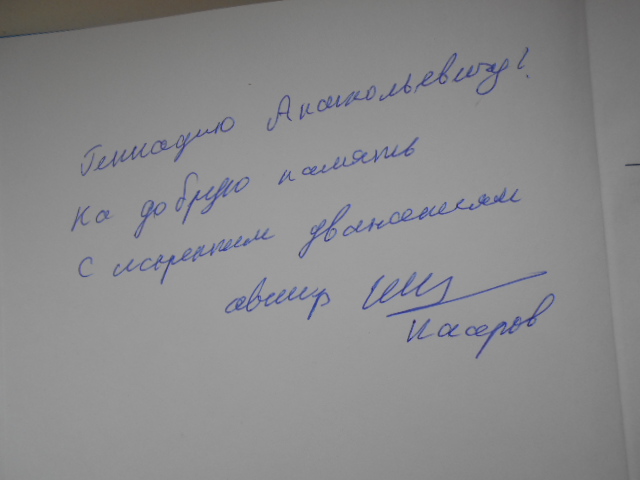 Геннадию Анатольевичу!
На добрую память
С искренним уважением
автор